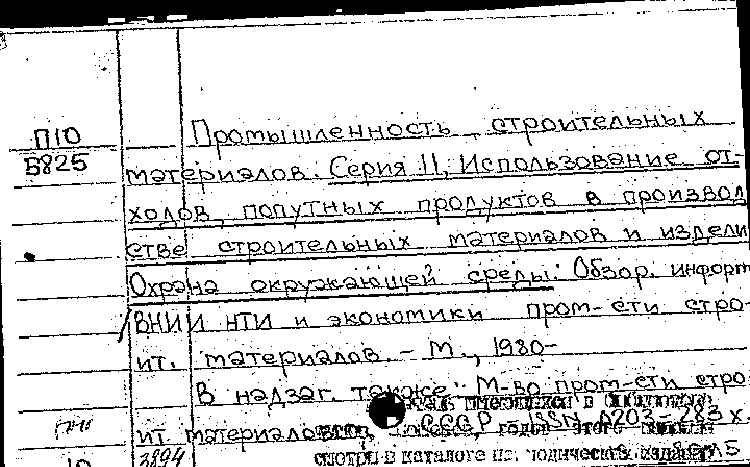 П10
Б825
Промышленность строительных
материалов. Серия 11, Использование от-
ходов, попутных продуктов в производ
стве строительных материалов и издели
Охрана окружающей среды: Обзор. информ
/ВНИИ НТИ и экономики пром-сти стро-
ит. материалов. – М., 1980-
В надзаг. также: М-во пром-сти стро
ит материалов СССР. ISSN 0203-283х.
3894 смотри в каталоге